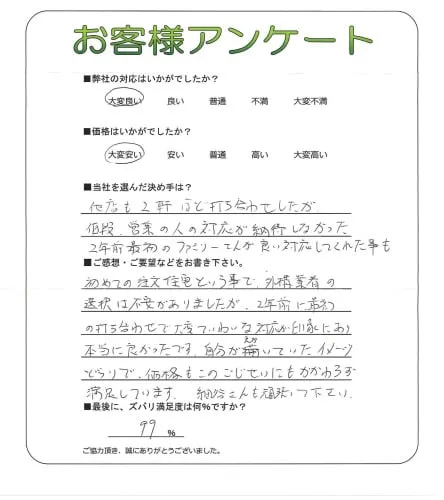 お客様アンケート
■弊社の対応はいかがでしたか？
大変良い 良い 普通 不満 大変不満
■価格はいかがでしたか？
大変安い 安い 普通 高い 大変高い
■当社を選んだ決め手は？
他店も2軒ほど打ち合わせしたが
価段、営業の人の対応が納得しなかった
2年前最初のファミリーさんが良い対応してくれた事も
■ご感想・ご要望などをお書き下さい。
初めての注文住宅という事で、外構業者の
選択は不安がありましたが、2年前に最初
の打ち合わせで大変ていねいな対応が印象にあり
本当に良かったです。自分が描いていたイメージ
えが
どうりで、価格もこのごじせいにもかかわらず
満足しています。 さんも頑張って下さい。
■最後に、ズバリ満足度は何％ですか？
99 %
ご協力頂き、誠にありがとうございました。